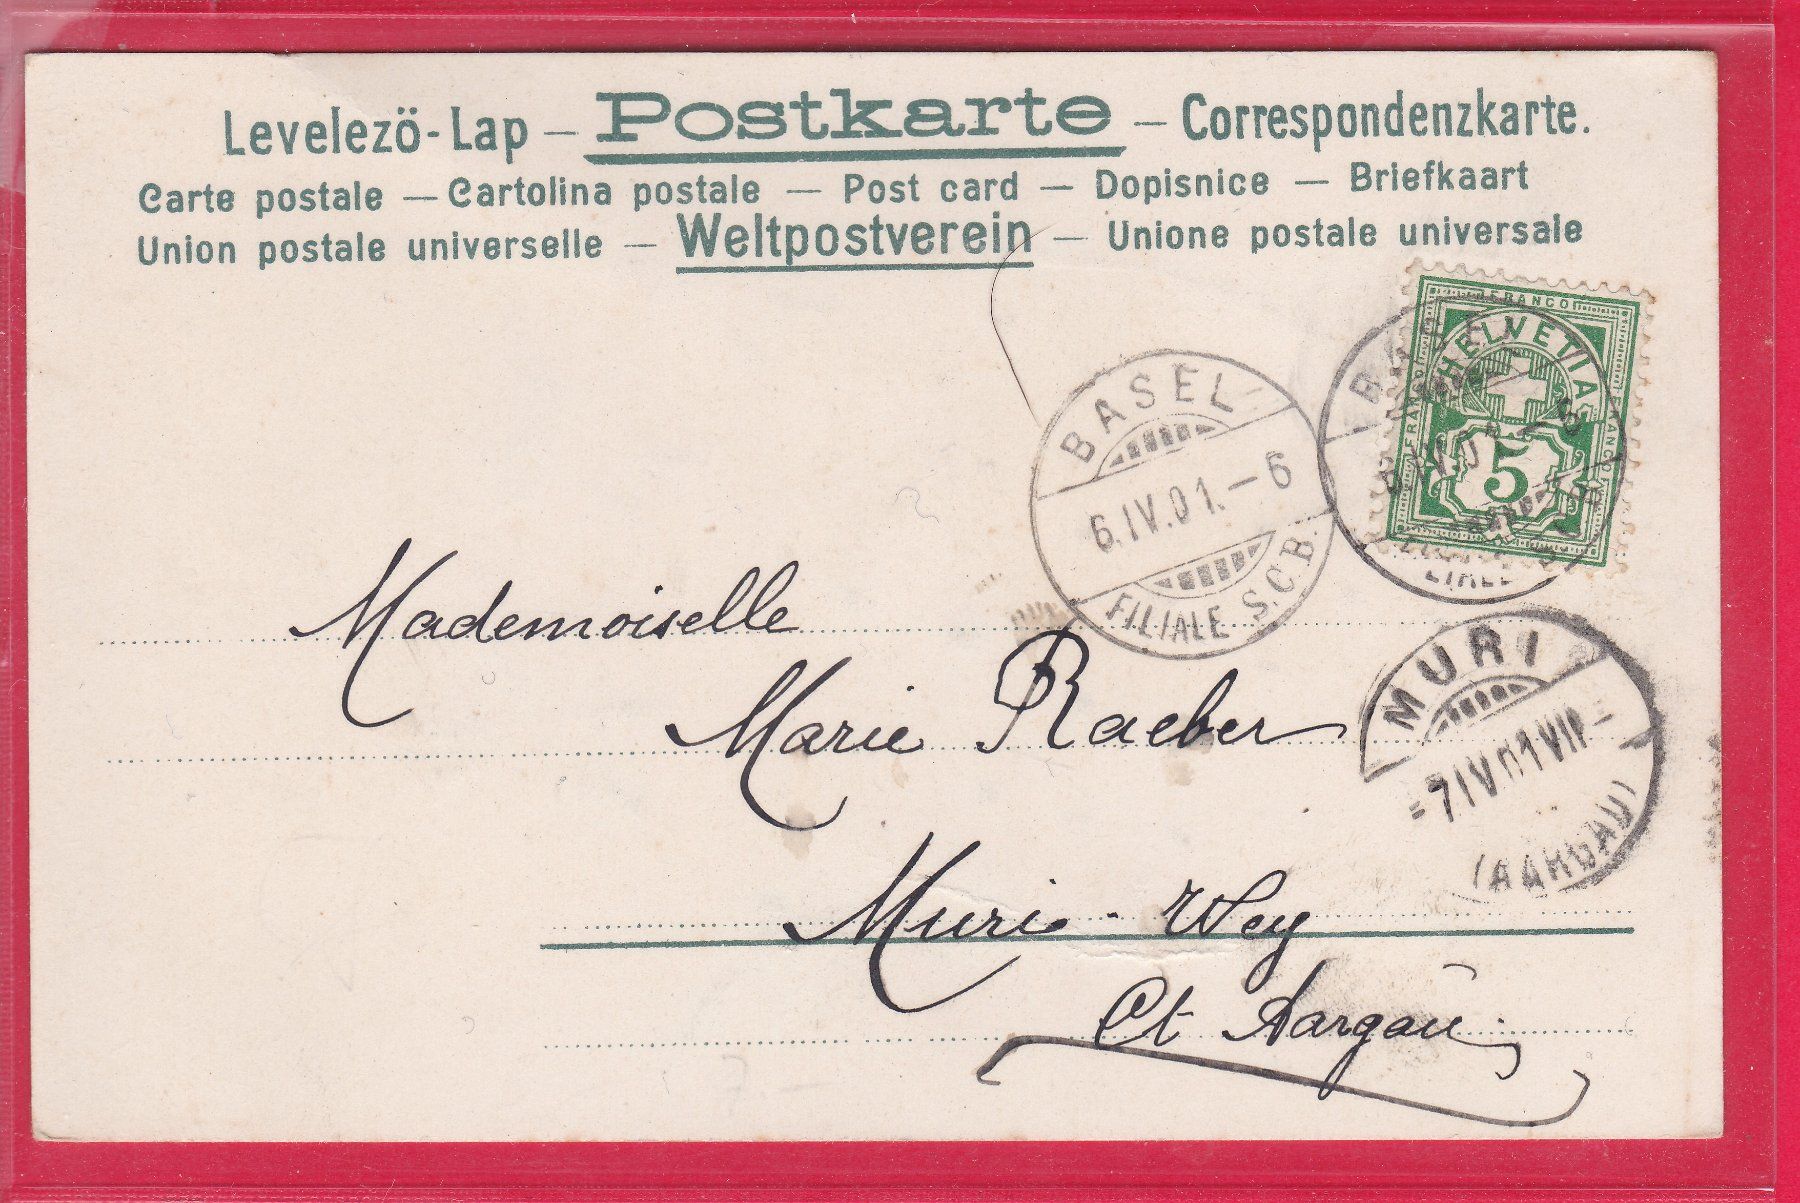 Levelezö-Lap — Postkarte — Correspondenzkarte.
Carte postale — Cartolina postale — Post card — Dopisnice — Briefkaart
Union postale universelle — Weltpostverein — Unione postale universale
FRANCO
HELVETIA
FRANCO
FRANCO
5
BASEL
6.IV.01.–6
FILIALE S.C.B.
Mademoiselle
Marie Raeber
MURI
7 IV 01 VII –
(AARGAU)
Muri - Wey
Ct Aargau.